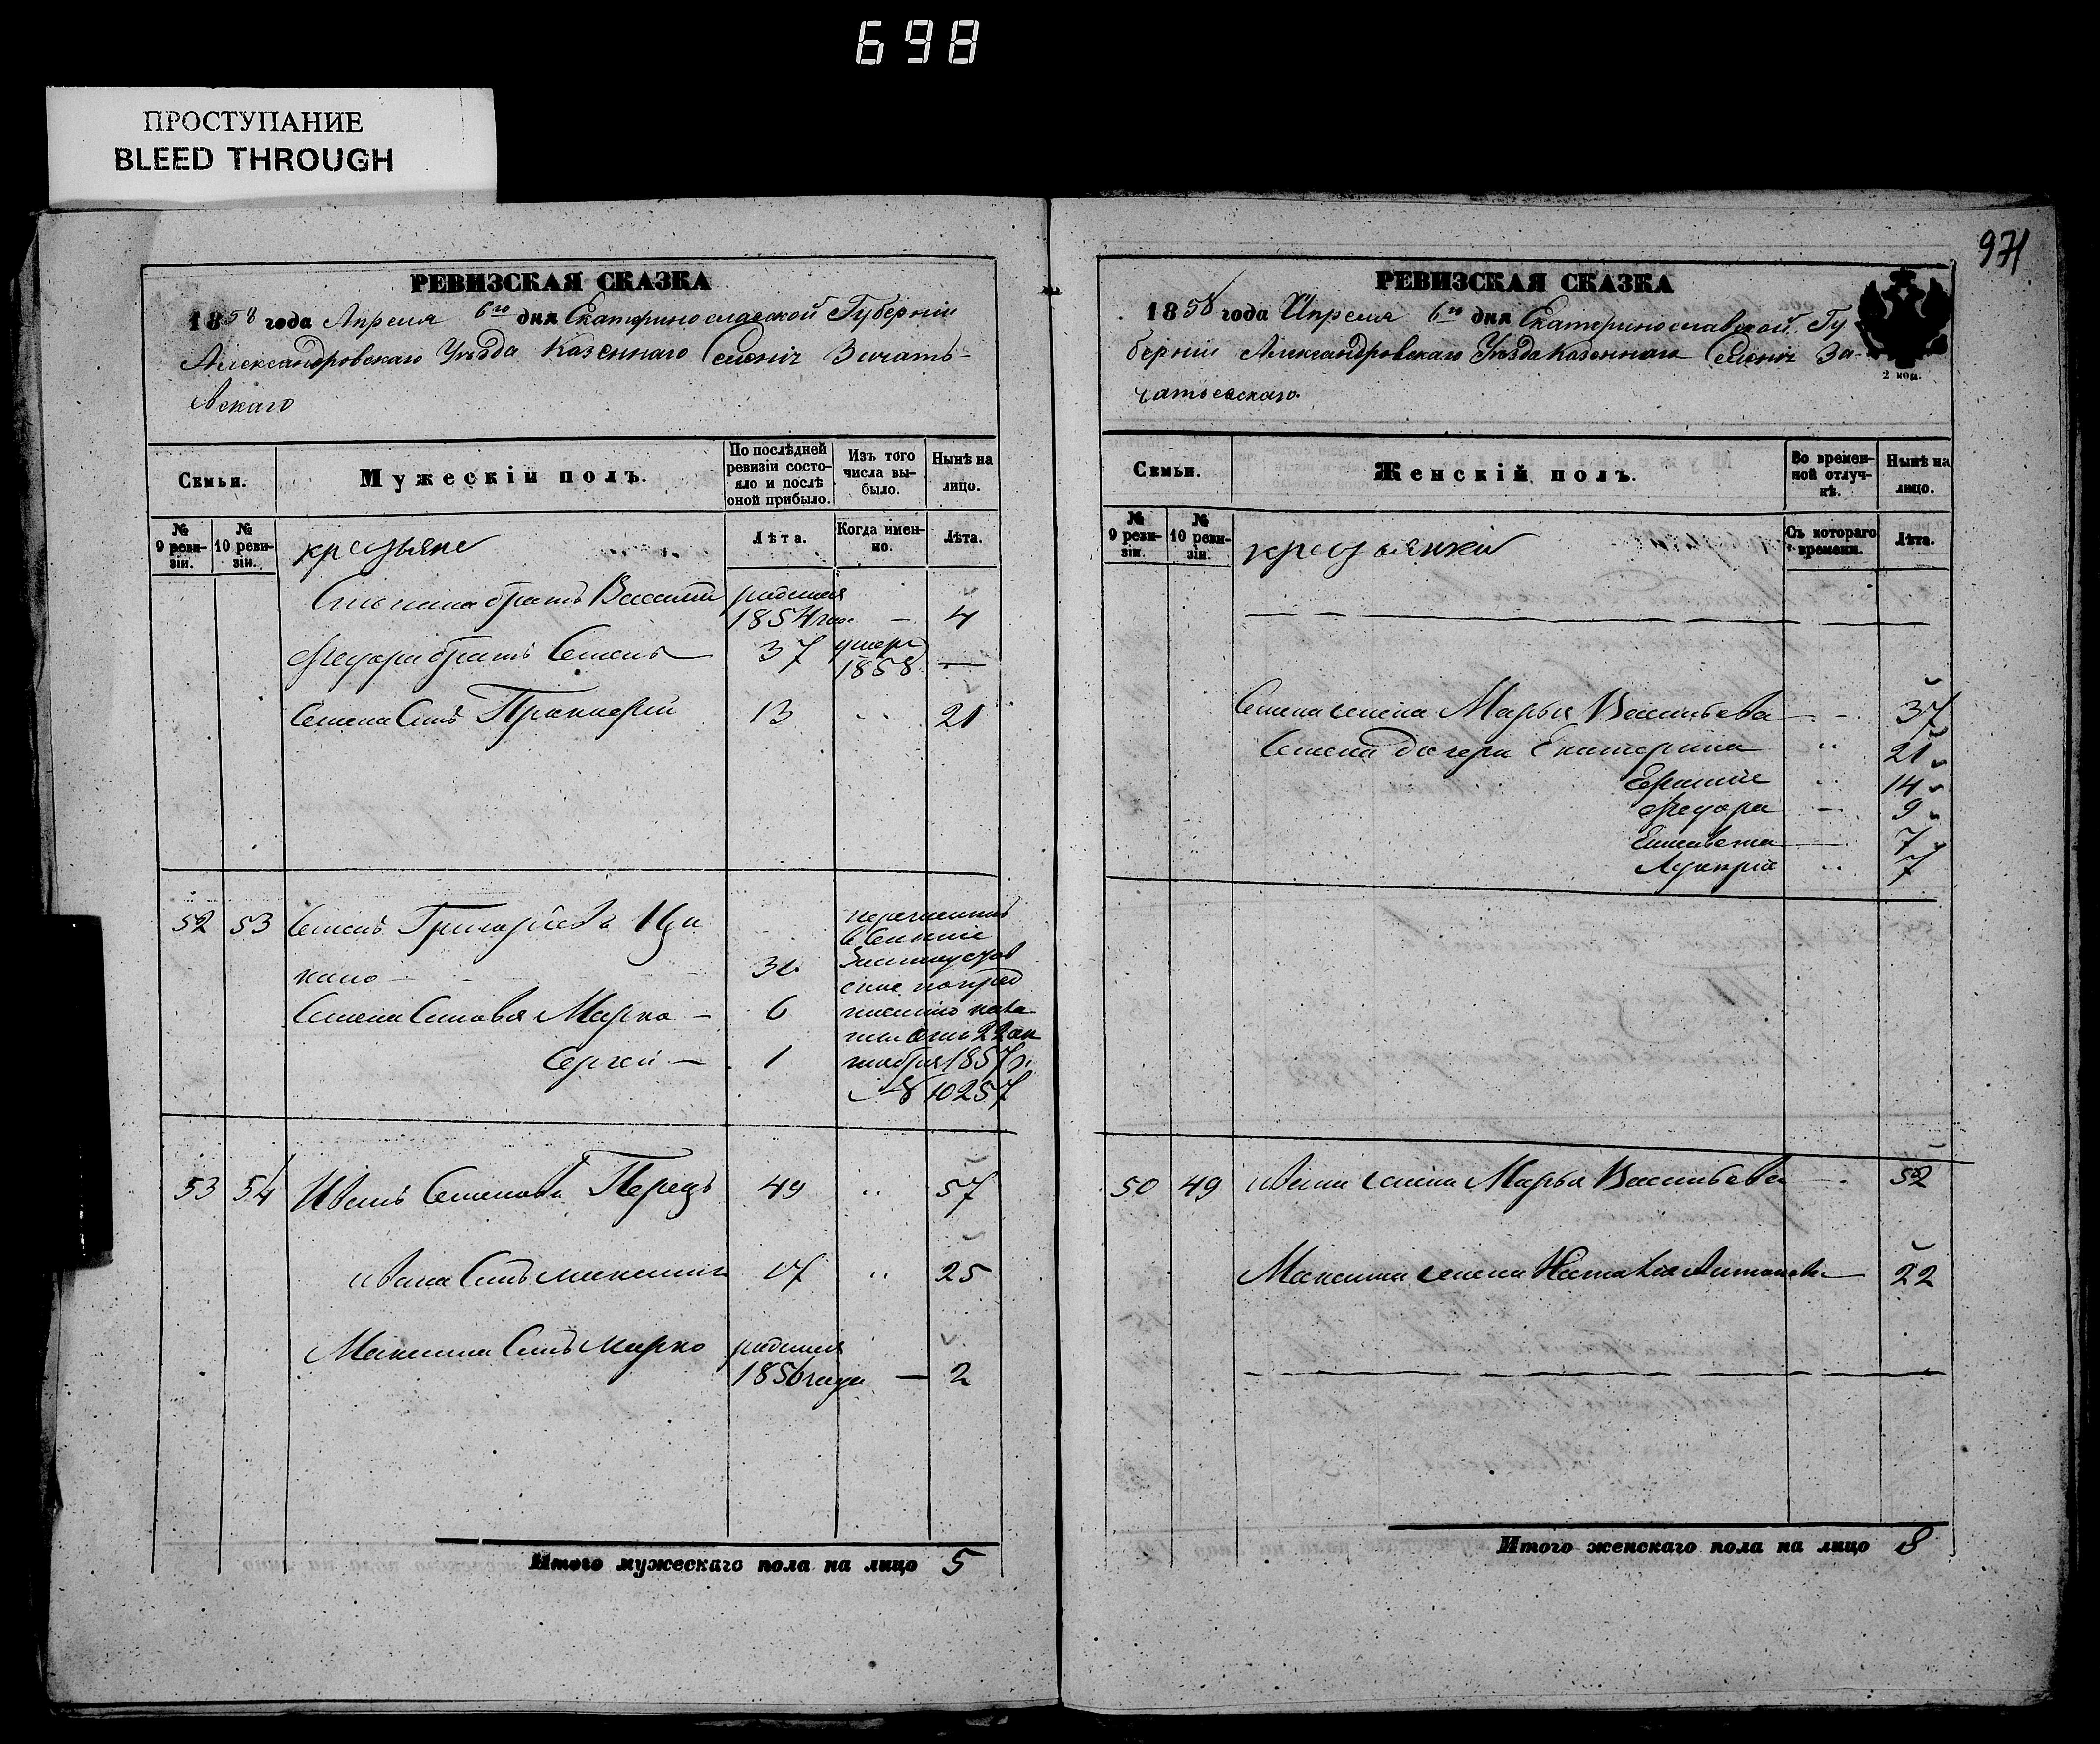 698
ПРОСТУПАНИЕ
BLEED THROUGH
971
РЕВИЗСКАЯ СКАЗКА
1858 года Апреля 6го дня Екатеринославской Губерніи
Александровскаго Уѣзда Казеннаго Селенія Зачать-
евскаго
Семьи.
Мужескій полъ.
По послѣдней
ревизіи состо-
яло и послѣ
оной прибыло.
Изъ того
числа вы-
было.
Нынѣ на
лицо.
№
9 реви-
зіи.
№
10 реви-
зіи.
крестьяне
Лѣта.
Когда имен-
но.
Лѣта.
братъ Василій родился
1854 — 4
Федора братъ Семенъ 37 умеръ
1858 —
Семена Сынъ 13 21
52 53 Семенъ Григорьевъ
6
Семена Сыновья Марко —
Сергей — 1
22 ок
тября 1857 г.
№ 10257
53 54 Иванъ Семеновъ Перецъ 49 57
Ивана Сынъ Максимъ 17 25
Максима Сынъ Марко родился
1856 года — 2
Итого мужескаго пола на лицо 5
РЕВИЗСКАЯ СКАЗКА
1858 года Апреля 6го дня Екатеринославской Гу
берніи Александровскаго Уѣзда Казеннаго Селенія За-
чатьевскаго.
2 коп.
Семьи.
Женскій полъ.
Во времен-
ной отлуч-
кѣ.
Нынѣ на
лицо.
№
9 реви-
зіи.
№
10 реви-
зіи.
крестьянки
Съ котораго
времени.
Лѣта.
Семена жена Марья Васильева 37
Семена дочери Екатерина 21
14
Федора — 9
Елисавета — 7
Лукерія 7
50 49 Ивана жена Марья Васильева 52
Максима жена Наталія Антонова — 22
Итого женскаго пола на лицо 8